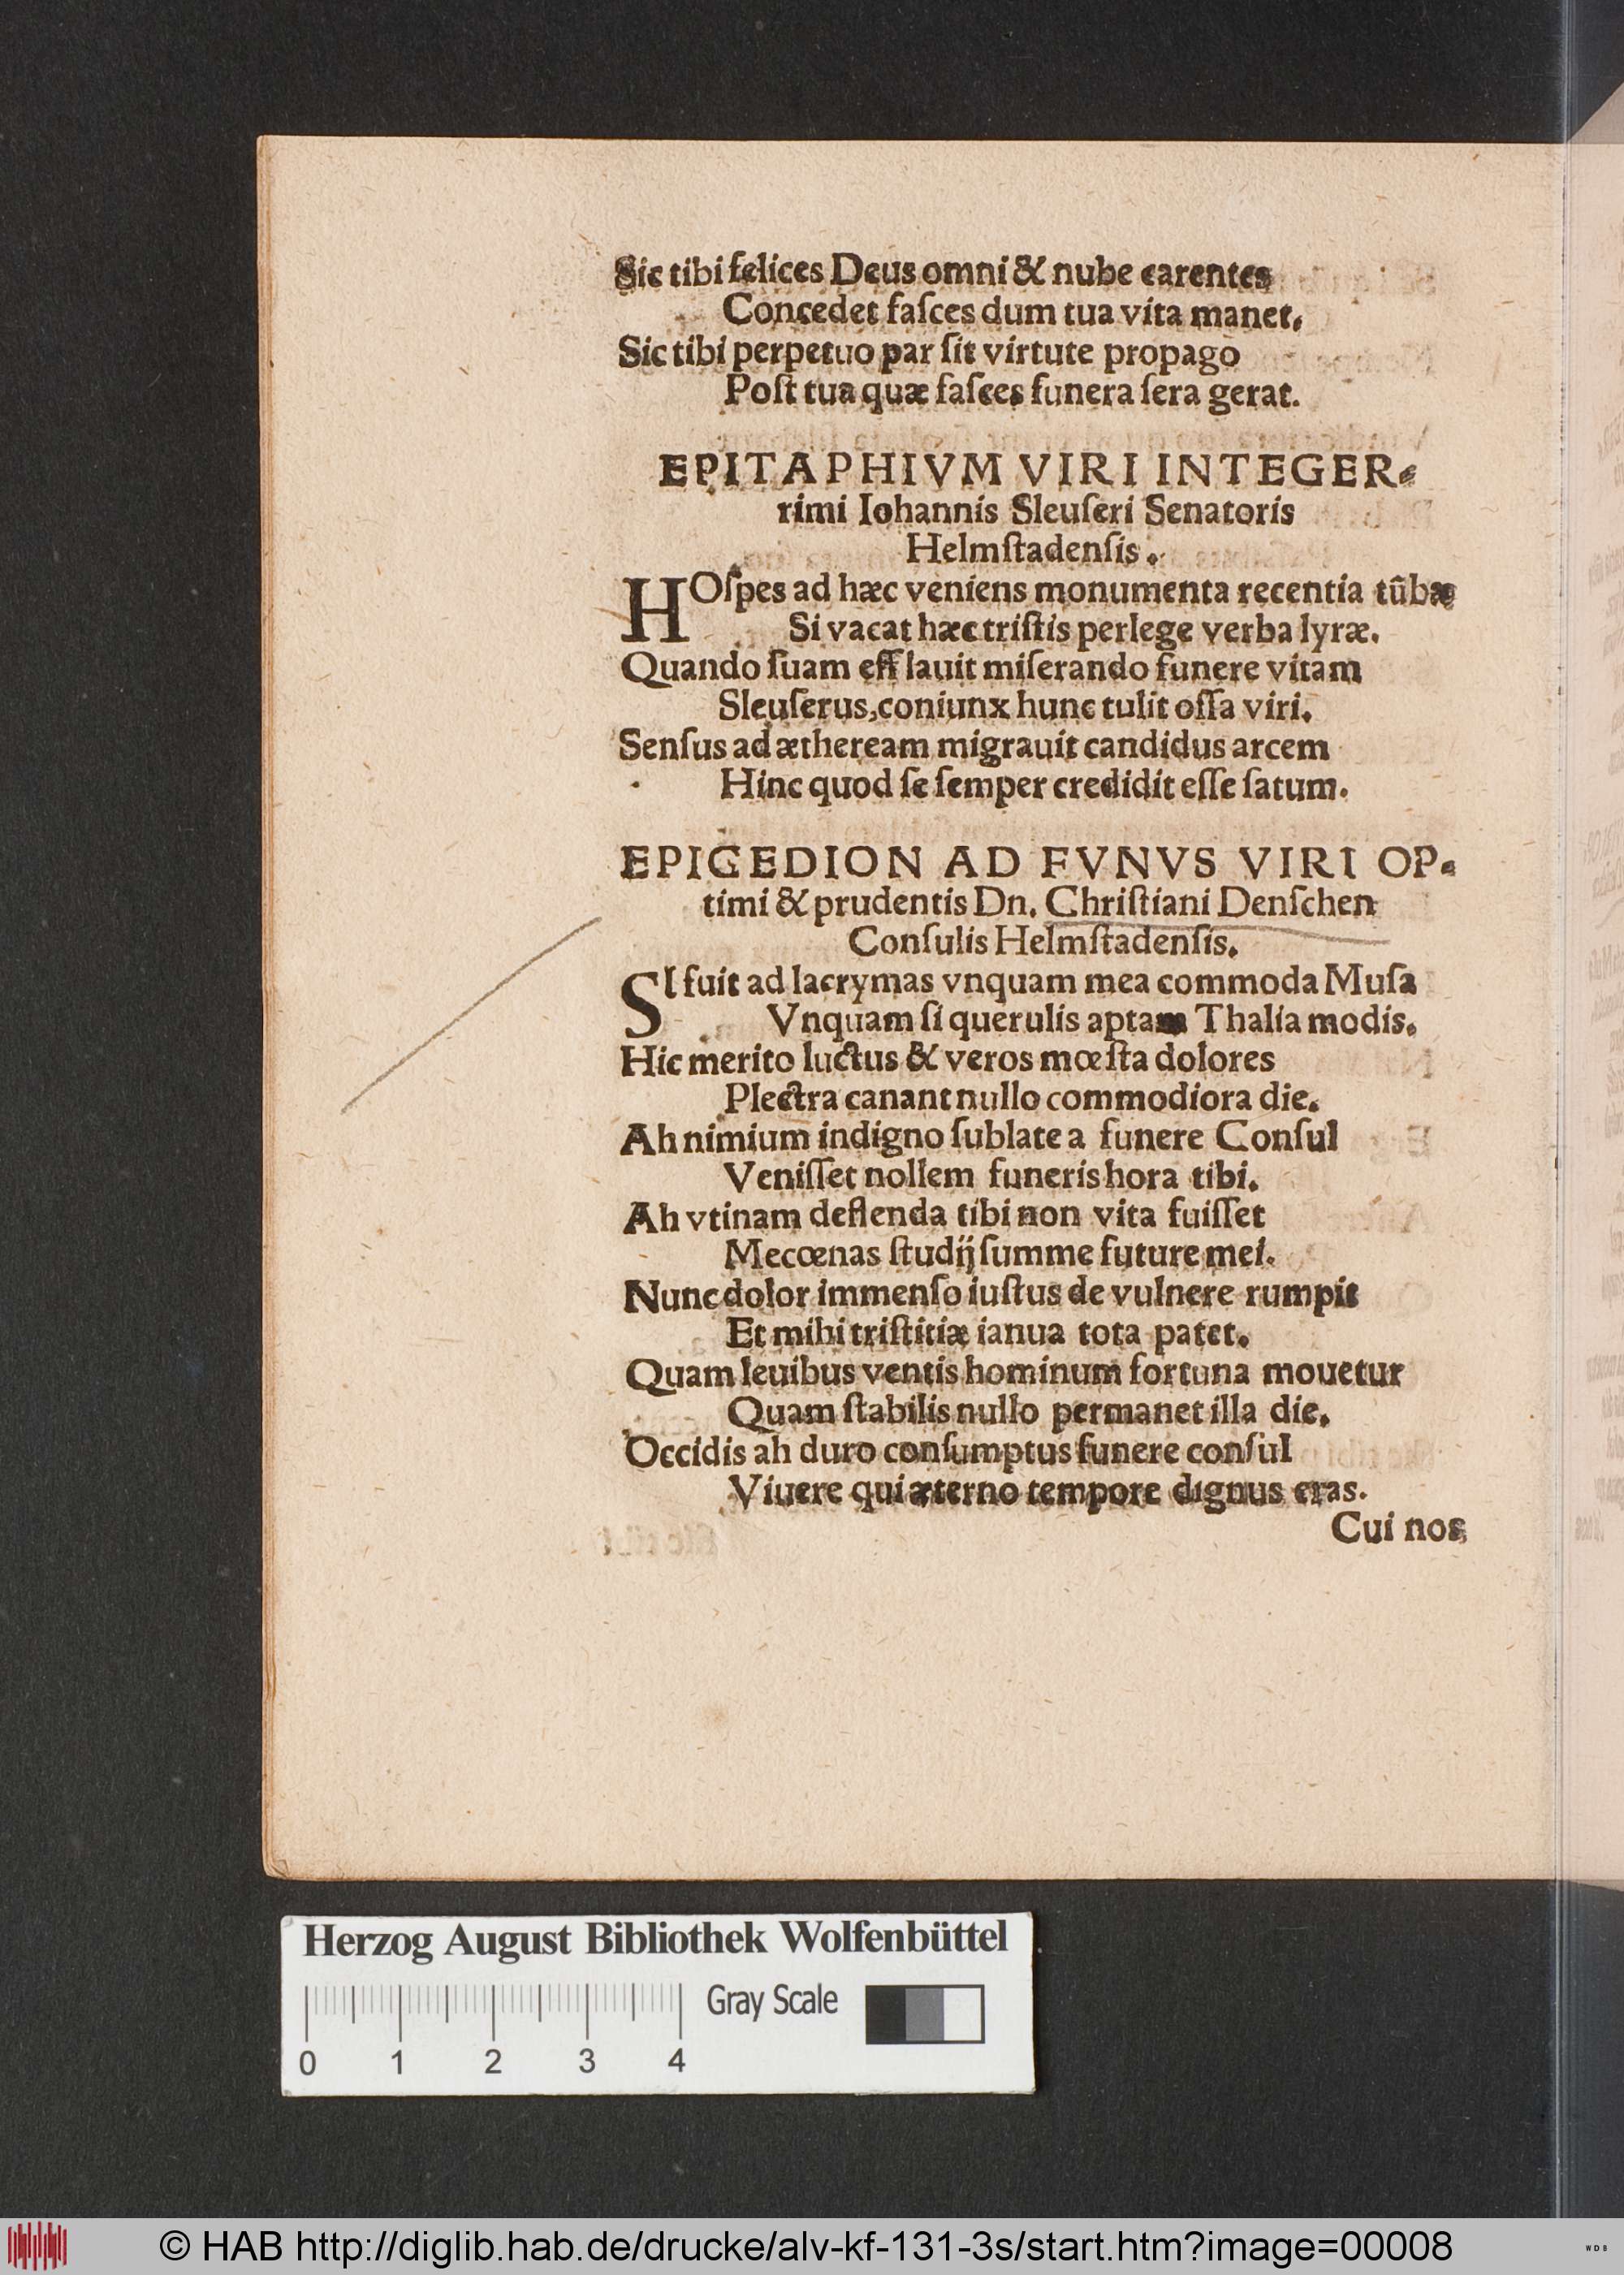 Sic tibi felices Deus omni & nube carentes
Concedet faſces dum tua vita manet,
Sic tibi perpetuo par ſit virtute propago
Poſt tua quæ faſces funera ſera gerat.
EPITAPHIVM VIRI INTEGER-
rimi Iohannis Sleuſeri Senatoris
Helmſtadenſis.
HOſpes ad hæc veniens monumenta recentia tũbæ
Si vacat hæc triſtis perlege verba lyræ.
Quando ſuam efflauit miſerando funere vitam
Sleuſerus, coniunx hunc tulit oſſa viri.
Senſus ad ætheream migrauit candidus arcem
Hinc quod ſe ſemper credidit eſſe ſatum.
EPICEDION AD FVNVS VIRI OP-
timi & prudentis Dn. Chriſtiani Denſchen
Conſulis Helmſtadenſis.
SI fuit ad lacrymas vnquam mea commoda Muſa
Vnquam ſi querulis apta Thalia modis.
Hic merito luctus & veros mœſta dolores
Plectra canant nullo commodiora die.
Ah nimium indigno ſublate a funere Conſul
Veniſſet nollem funeris hora tibi.
Ah vtinam deflenda tibi non vita fuiſſet
Mecœnas ſtudij ſumme future mei.
Nunc dolor immenſo iuſtus de vulnere rumpit
Et mihi triſtitiæ ianua tota patet.
Quam leuibus ventis hominum fortuna mouetur
Quam ſtabilis nullo permanet illa die.
Occidis ah duro conſumptus funere conſul
Viuere qui æterno tempore dignus eras.
Cui nos
Herzog August Bibliothek Wolfenbüttel
Gray Scale
0 1 2 3 4
© HAB http://diglib.hab.de/drucke/alv-kf-131-3s/start.htm?image=00008
WDB